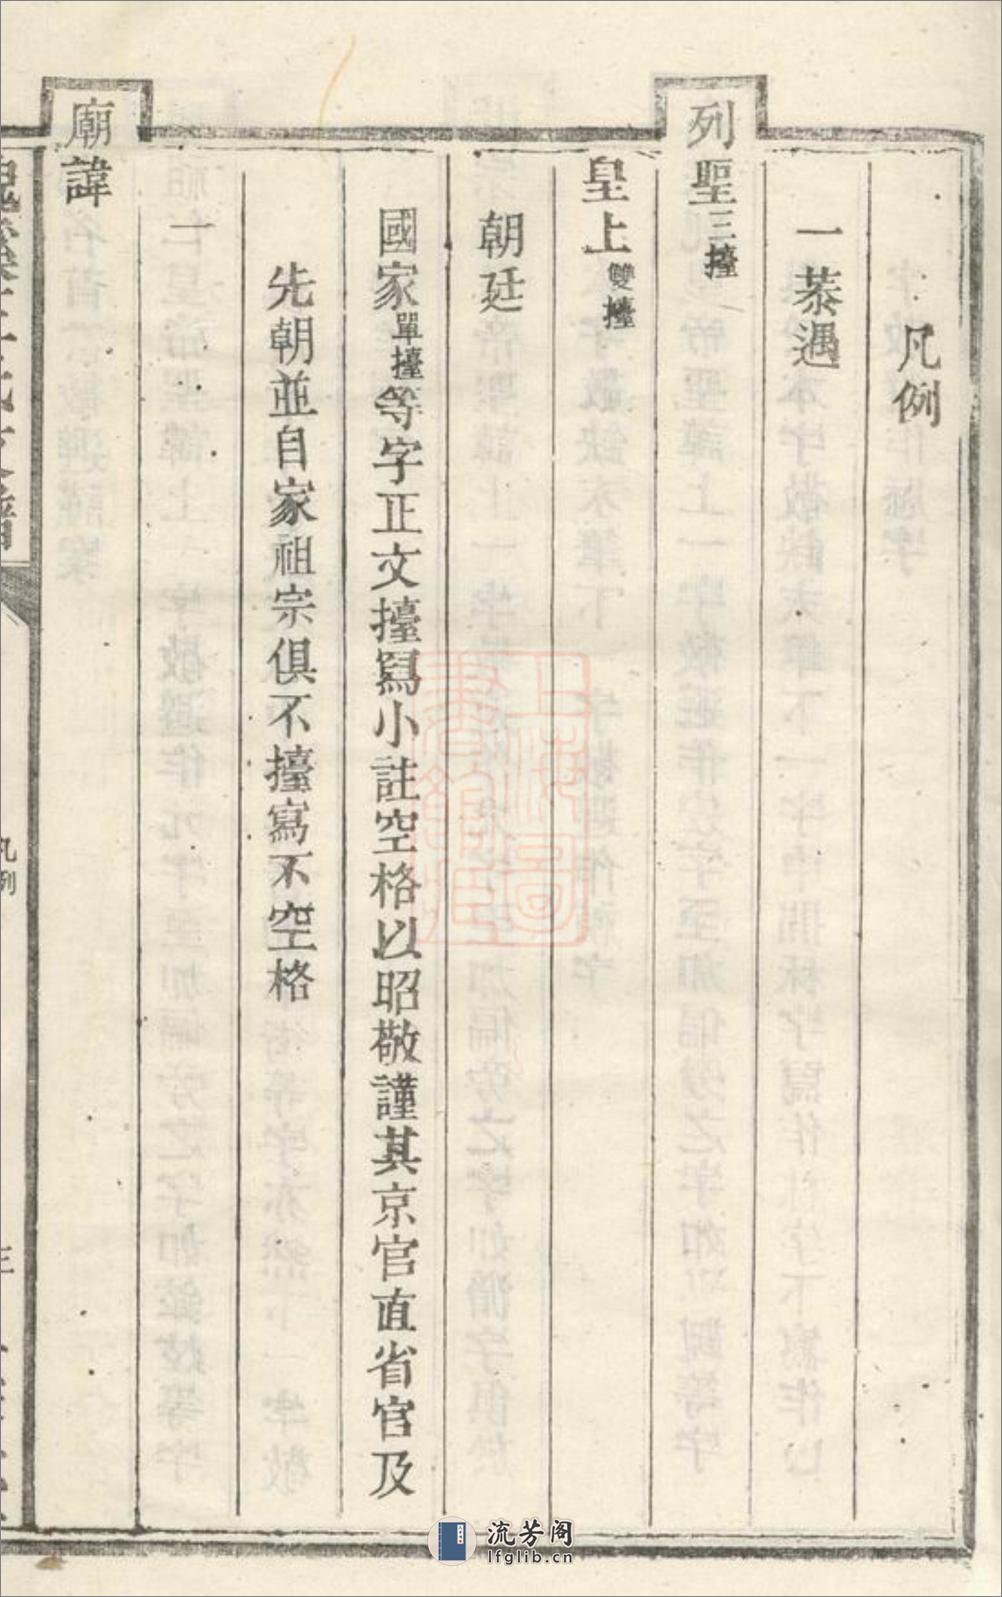 凡例
一恭遇
列聖三擡
皇上雙擡
朝廷
國家單擡等字正文擡寫小註空格以昭敬謹其京官直省官及
先朝並自家祖宗俱不擡寫不空格
一
廟諱
凡例
上海圖書館藏
流芳阁
lfglib.cn